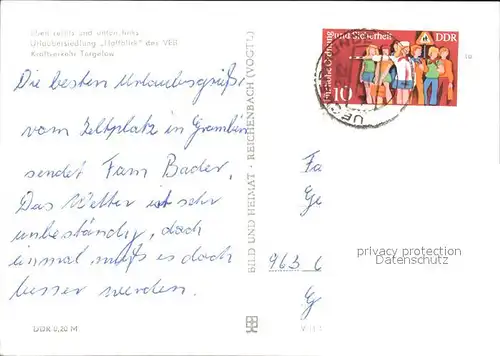 oben rechts und unten links
Urlaubersiedlung „Haffblick" des VEB
Kraftverkehr Torgelow
Die besten Urlaubsgrüße
vom Zeltplatz in Grambin
sendet Fam Bader.
Das Wetter ist sehr
unbeständig, doch
einmal muß es doch
besser werden.
DDR 0,20 M
BILD UND HEIMAT · REICHENBACH (VOGTL)
Öffentliche Ordnung
und Sicherheit
DDR
10
Fa
Ge
963
G
privacy protection
Datenschutz